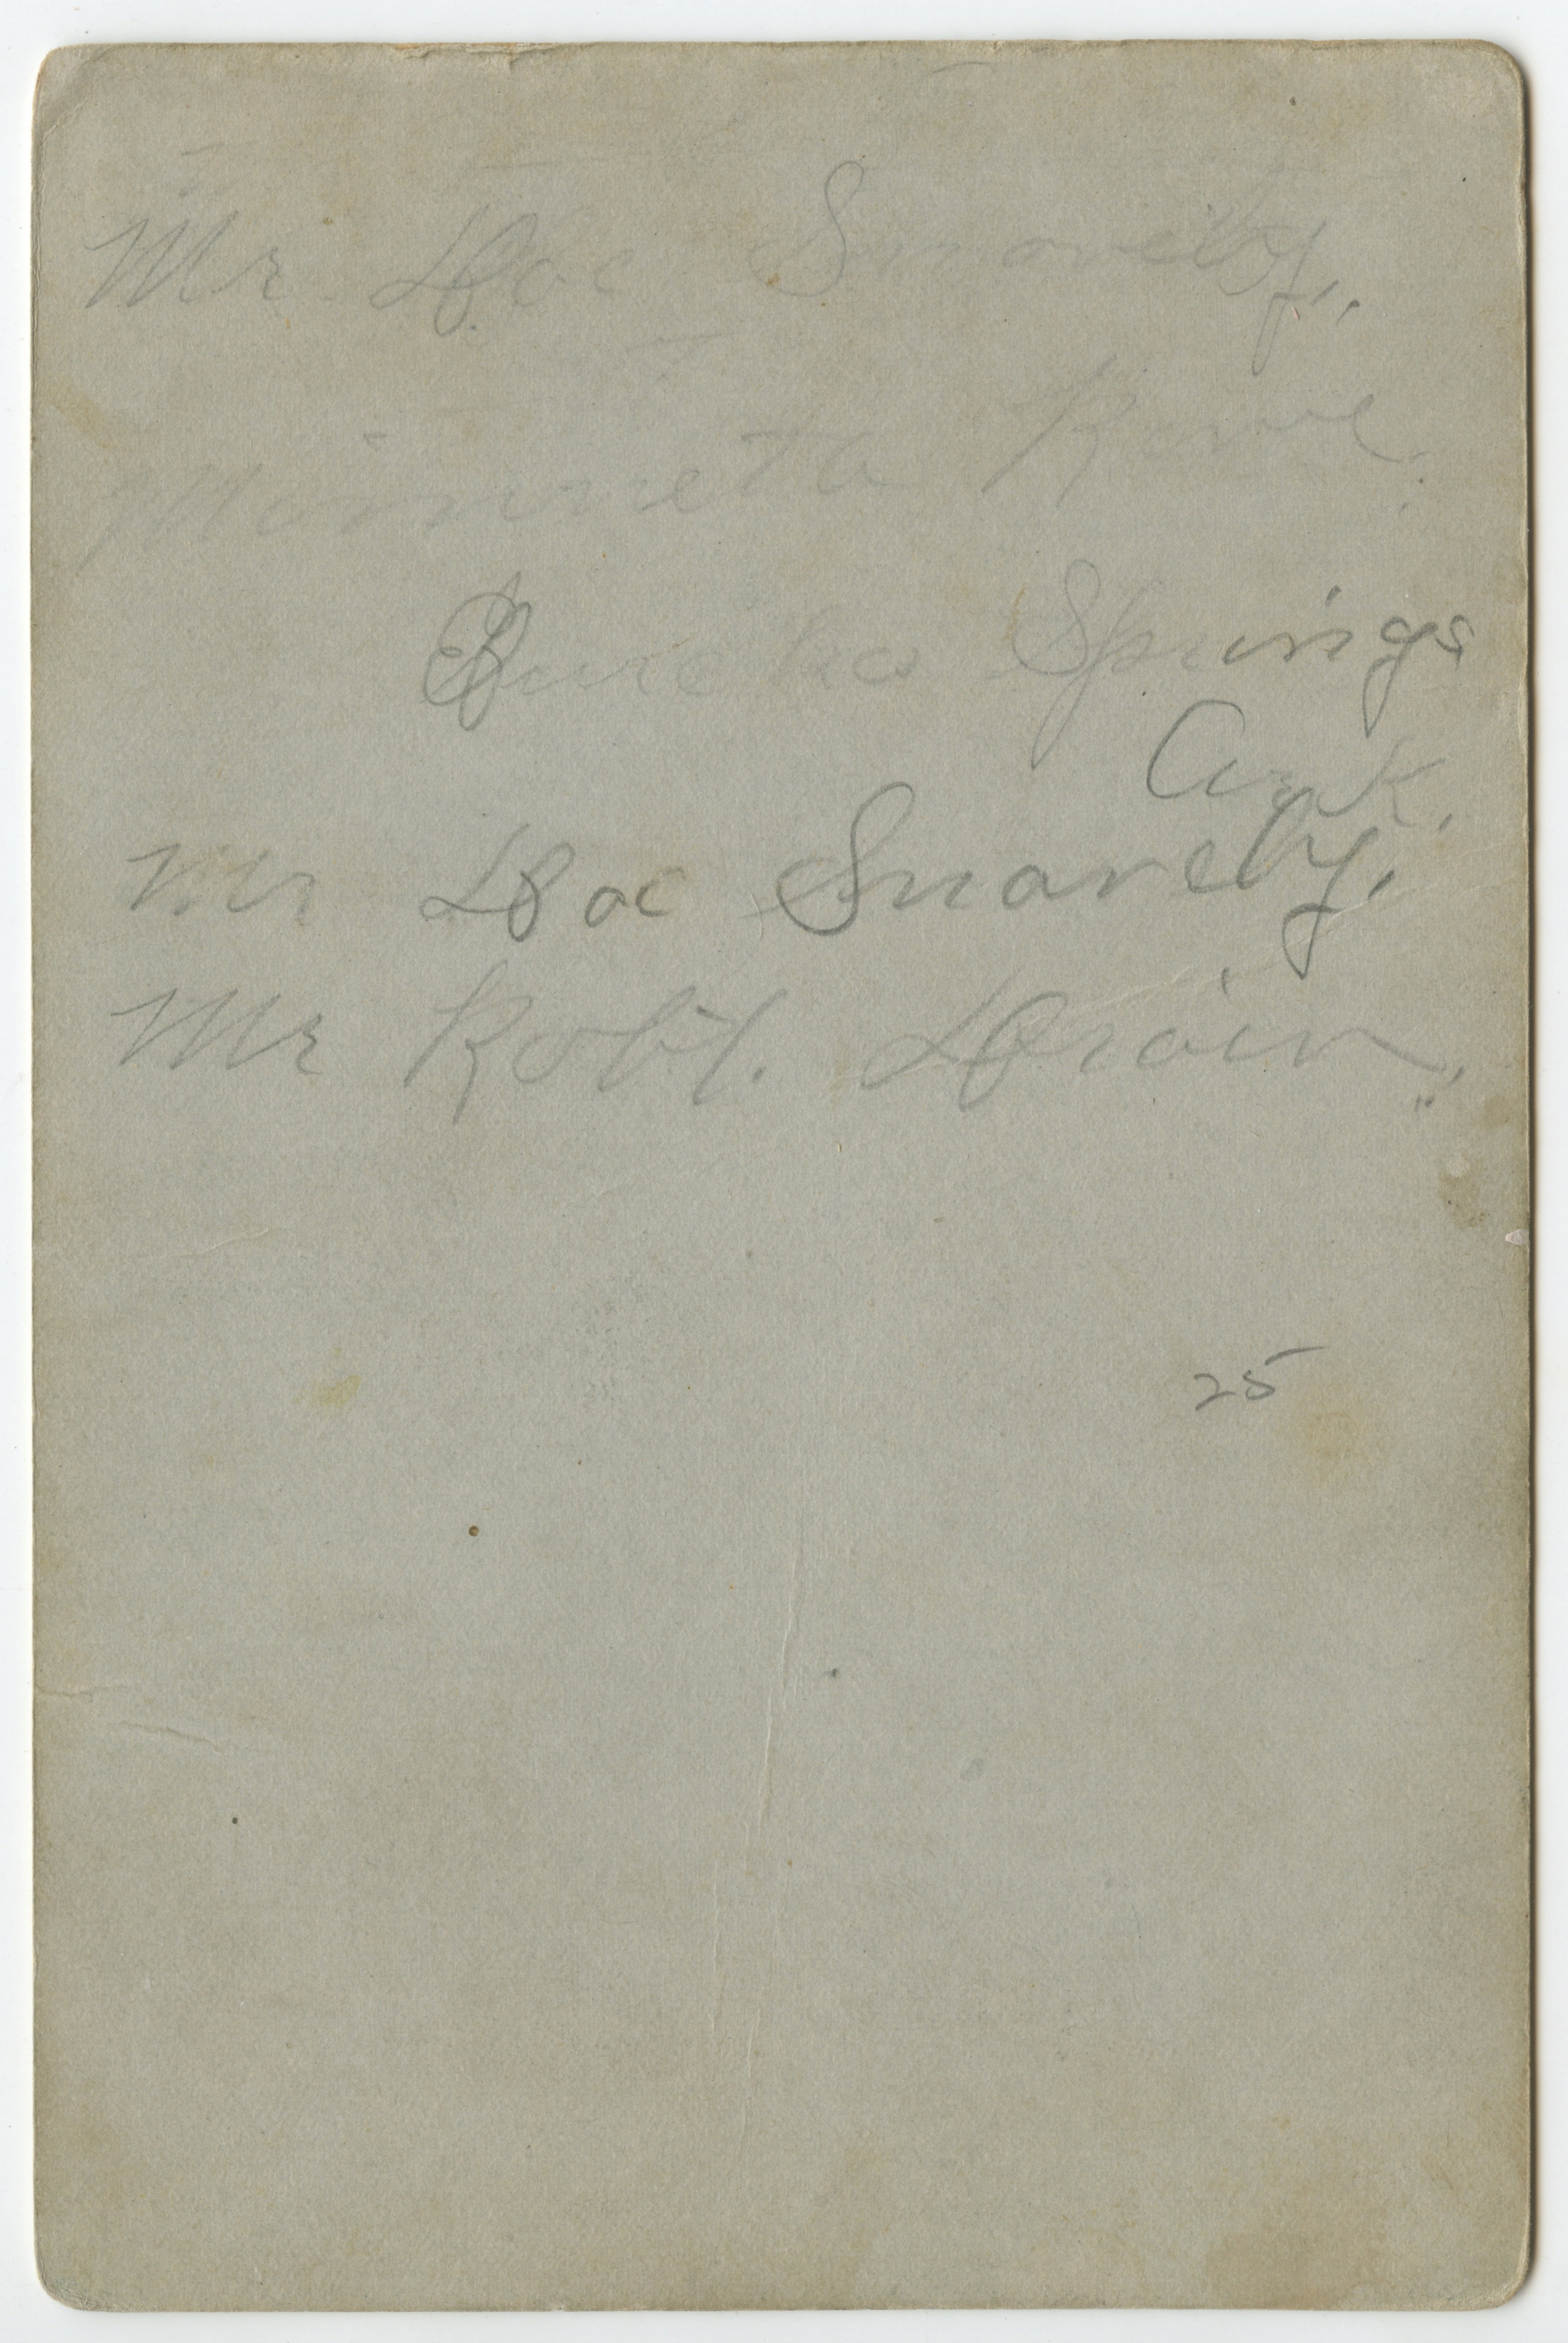 Mr. Doc Snavely,.
Minnneta Rowe.
Eureka Springs
Ark.
Mr Doc Snavely,
Mr Robt. Drain,
25